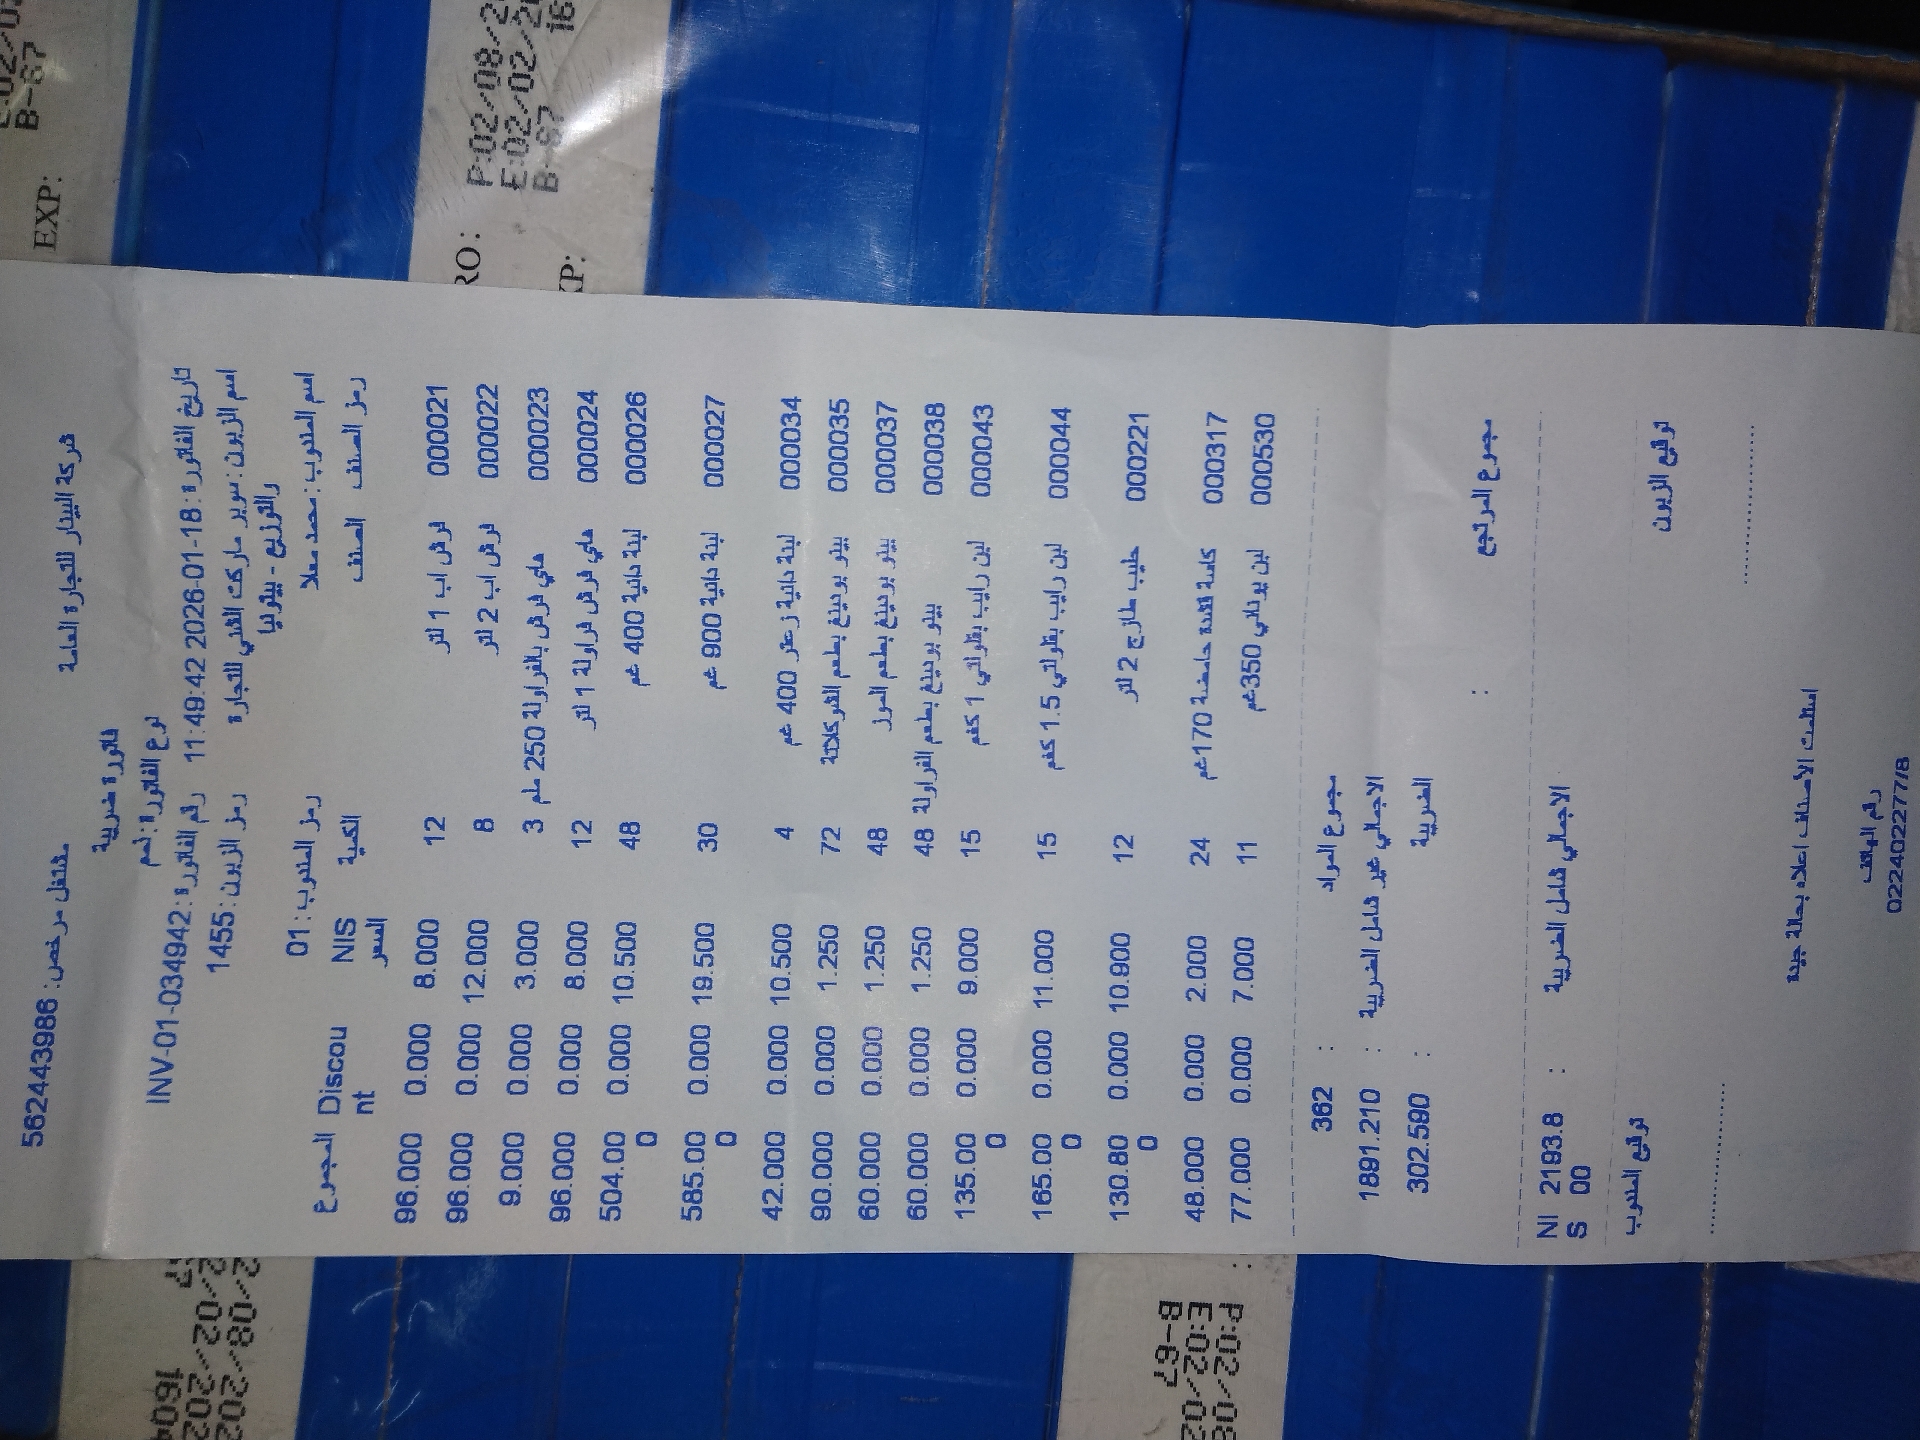 شركة البيدر للتجارة العامة
مشتغل مرخص: 562443986
فاتورة ضريبية
نوع الفاتورة: ذمم
رقم الفاتورة: INV-01-034942
تاريخ الفاتورة: 2026-01-18 11:49:42
رمز الزبون: 1455
اسم الزبون: سوبر ماركت الغني للتجارة والتوزيع - بيتونيا
اسم المندوب: محمد معلا
رمز المندوب: 01
رمز الصنف الصنف الكمية NIS السعر Discount المجموع
000021 فرش اب 1 لتر 12 8.000 0.000 96.000
000022 فرش اب 2 لتر 8 12.000 0.000 96.000
000023 هاي فرش بالفراولة 250 ملم 3 3.000 0.000 9.000
000024 هاي فرش فراولة 1 لتر 12 8.000 0.000 96.000
000026 لبنة دانية 400 غم 48 10.500 0.000 504.000
000027 لبنة دانية 900 غم 30 19.500 0.000 585.000
000034 لبنة دانية زعتر 400 غم 4 10.500 0.000 42.000
000035 بيتو بودينغ بطعم الشوكلاتة 72 1.250 0.000 90.000
000037 بيتو بودينغ بطعم الموز 48 1.250 0.000 60.000
000038 بيتو بودينغ بطعم الفراولة 48 1.250 0.000 60.000
000043 لبن رايب بقلولتي 1 كغم 15 9.000 0.000 135.000
000044 لبن رايب بقلولتي 1.5 كغم 15 11.000 0.000 165.000
000221 حليب طازج 2 لتر 12 10.900 0.000 130.800
000317 كاسة قشدة حامضة 170غم 24 2.000 0.000 48.000
000530 لبن يوناني 350غم 11 7.000 0.000 77.000
مجموع المواد : 362
الاجمالي غير شامل الضريبة : 1891.210
الضريبة : 302.590
مجموع المرتجع :
الاجمالي شامل الضريبة : NIS 2193.800
توقيع الزبون توقيع المندوب
استلمت الأصناف اعلاه بحالة جيدة
رقم الهاتف
022402277/8
EXP:
B-67
P:02/08/2
E:02/02/2
B-67
P:02/08
E:02/02
B-67